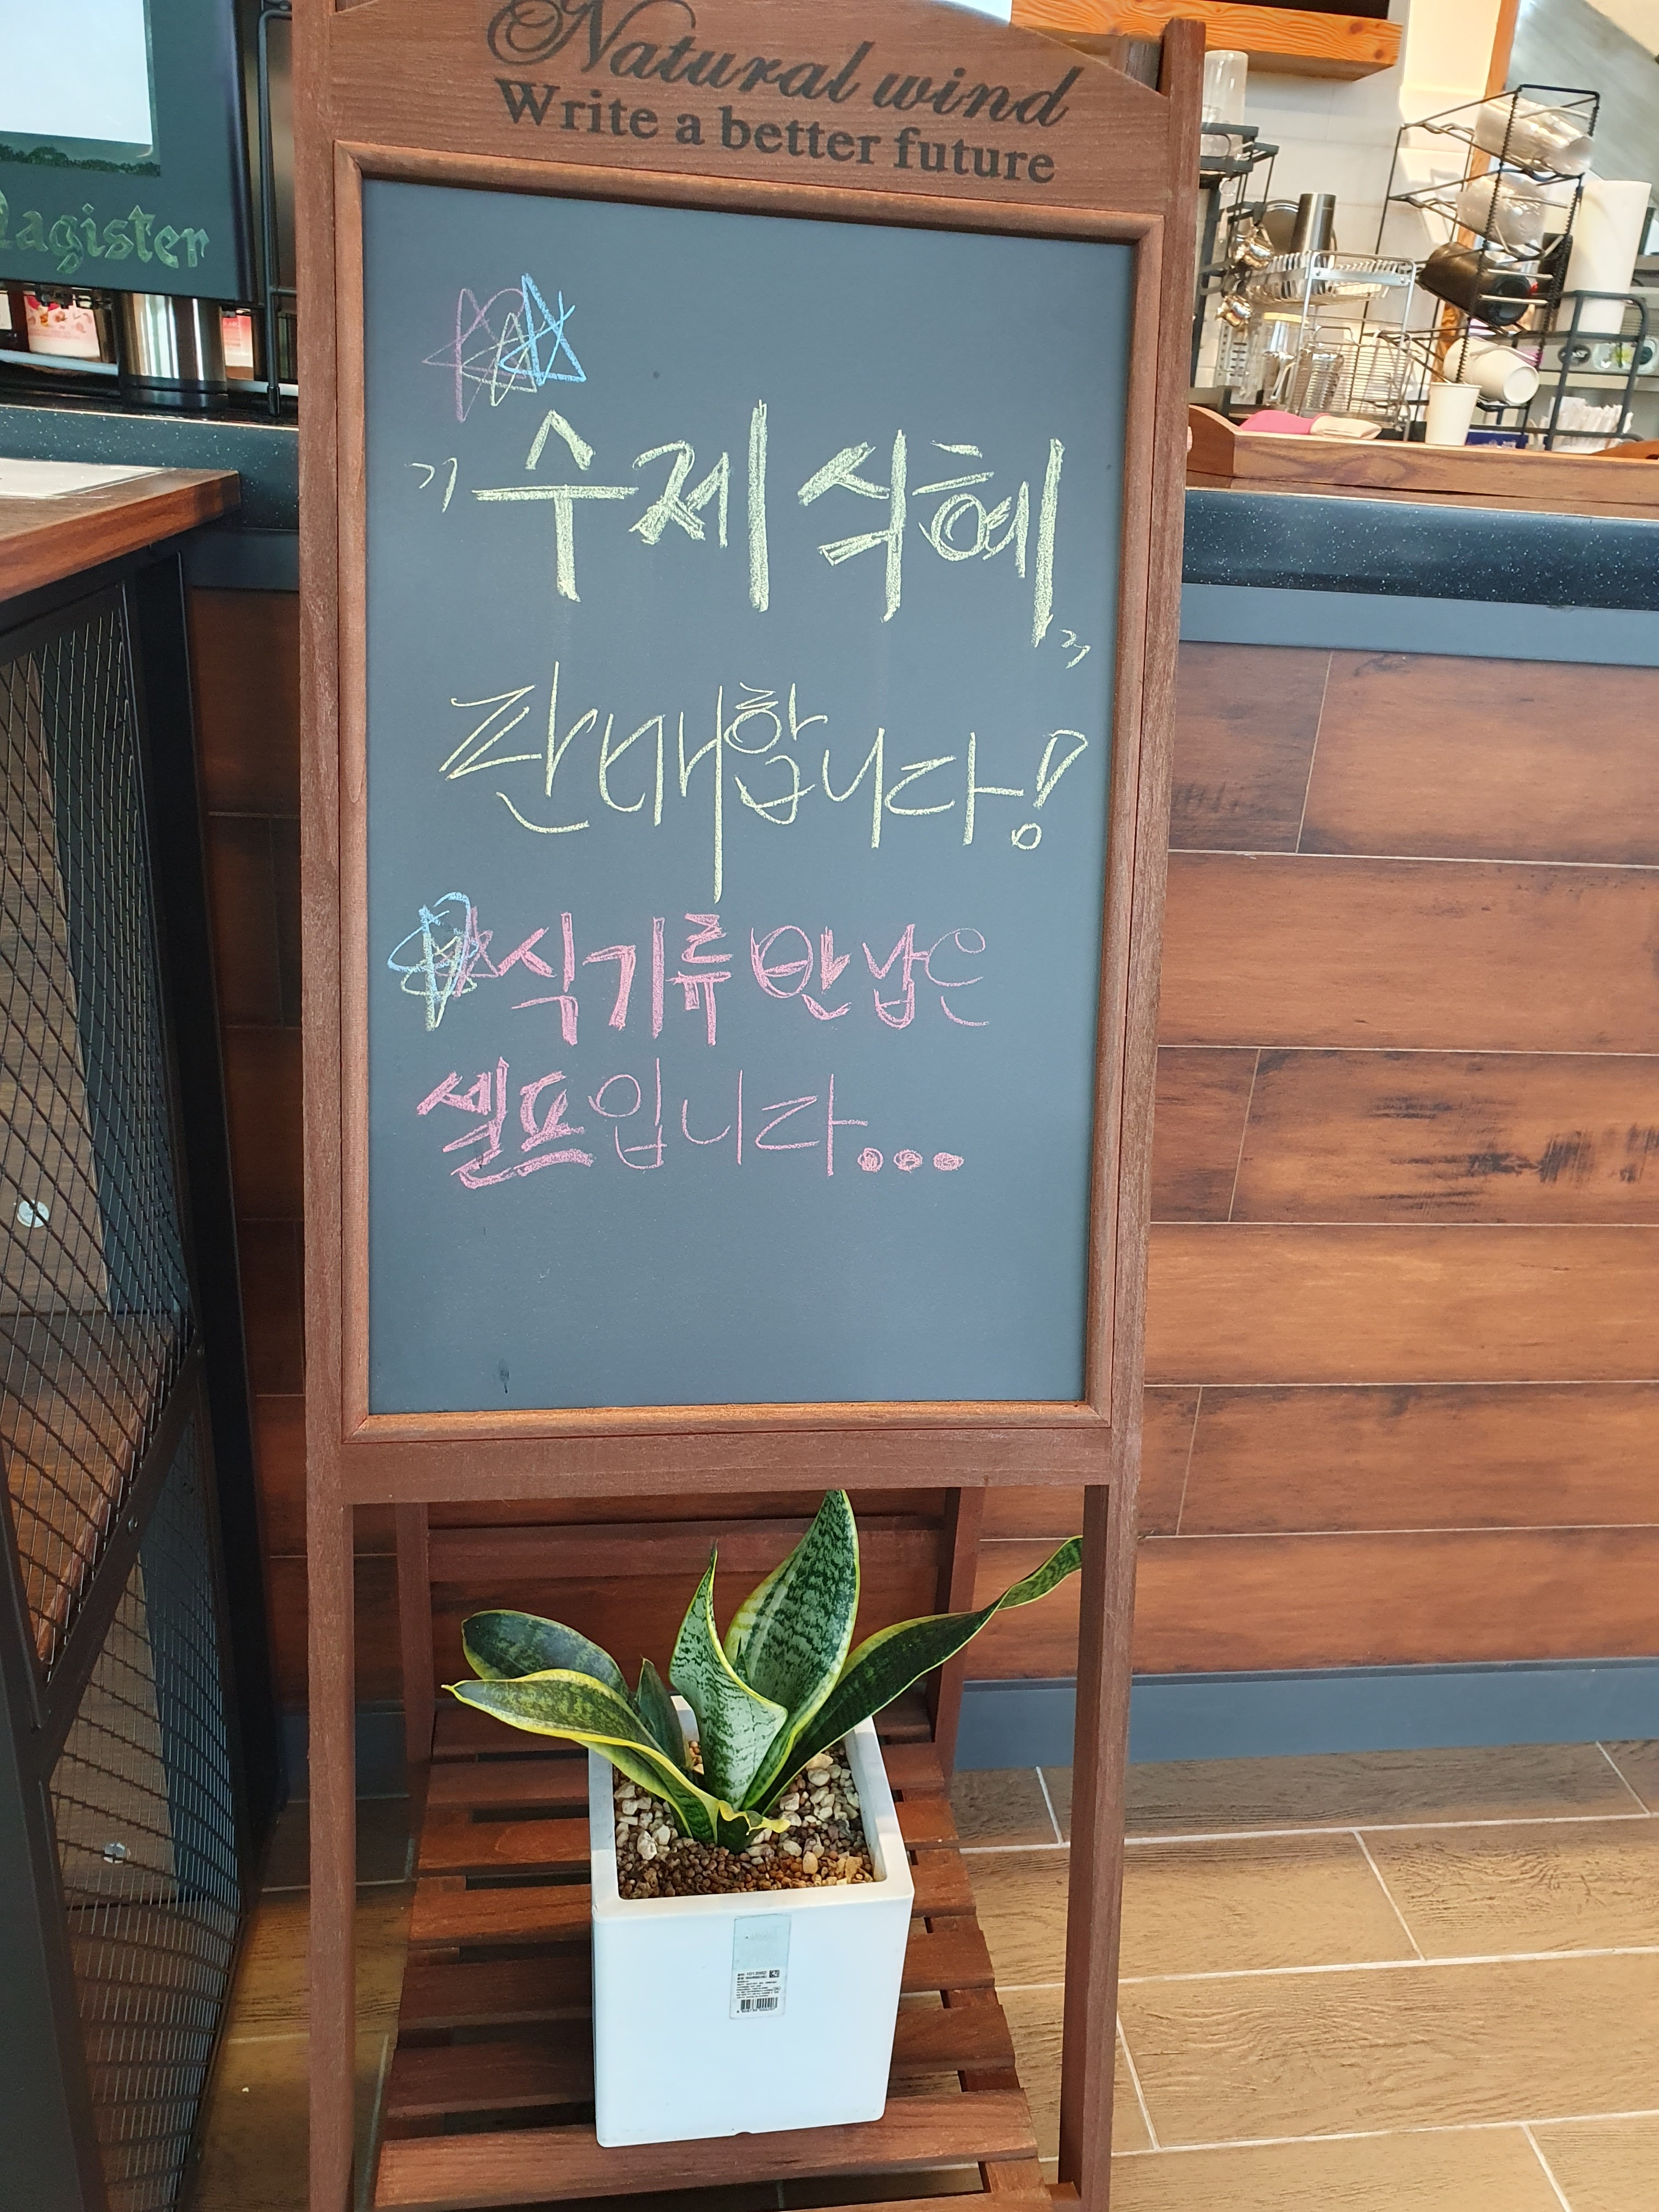 Natural wind
Write a better future
Magister
"수제 식혜"
판매합니다!
식기류 반납은
셀프입니다...